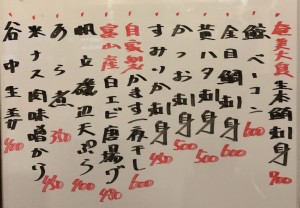 奄美大島 本鯛刺身 900
鯨ベーコン 600
金目鯛刺身 600
黄ハタ刺身 500
かつお刺身 500
すみいか刺身 450
自家製 かます一夜干し
富山産 白エビ唐揚げ 480
帆立磯辺天ぷら 400
あら煮 350
米ナス肉味噌かけ 450
谷中生姜 400